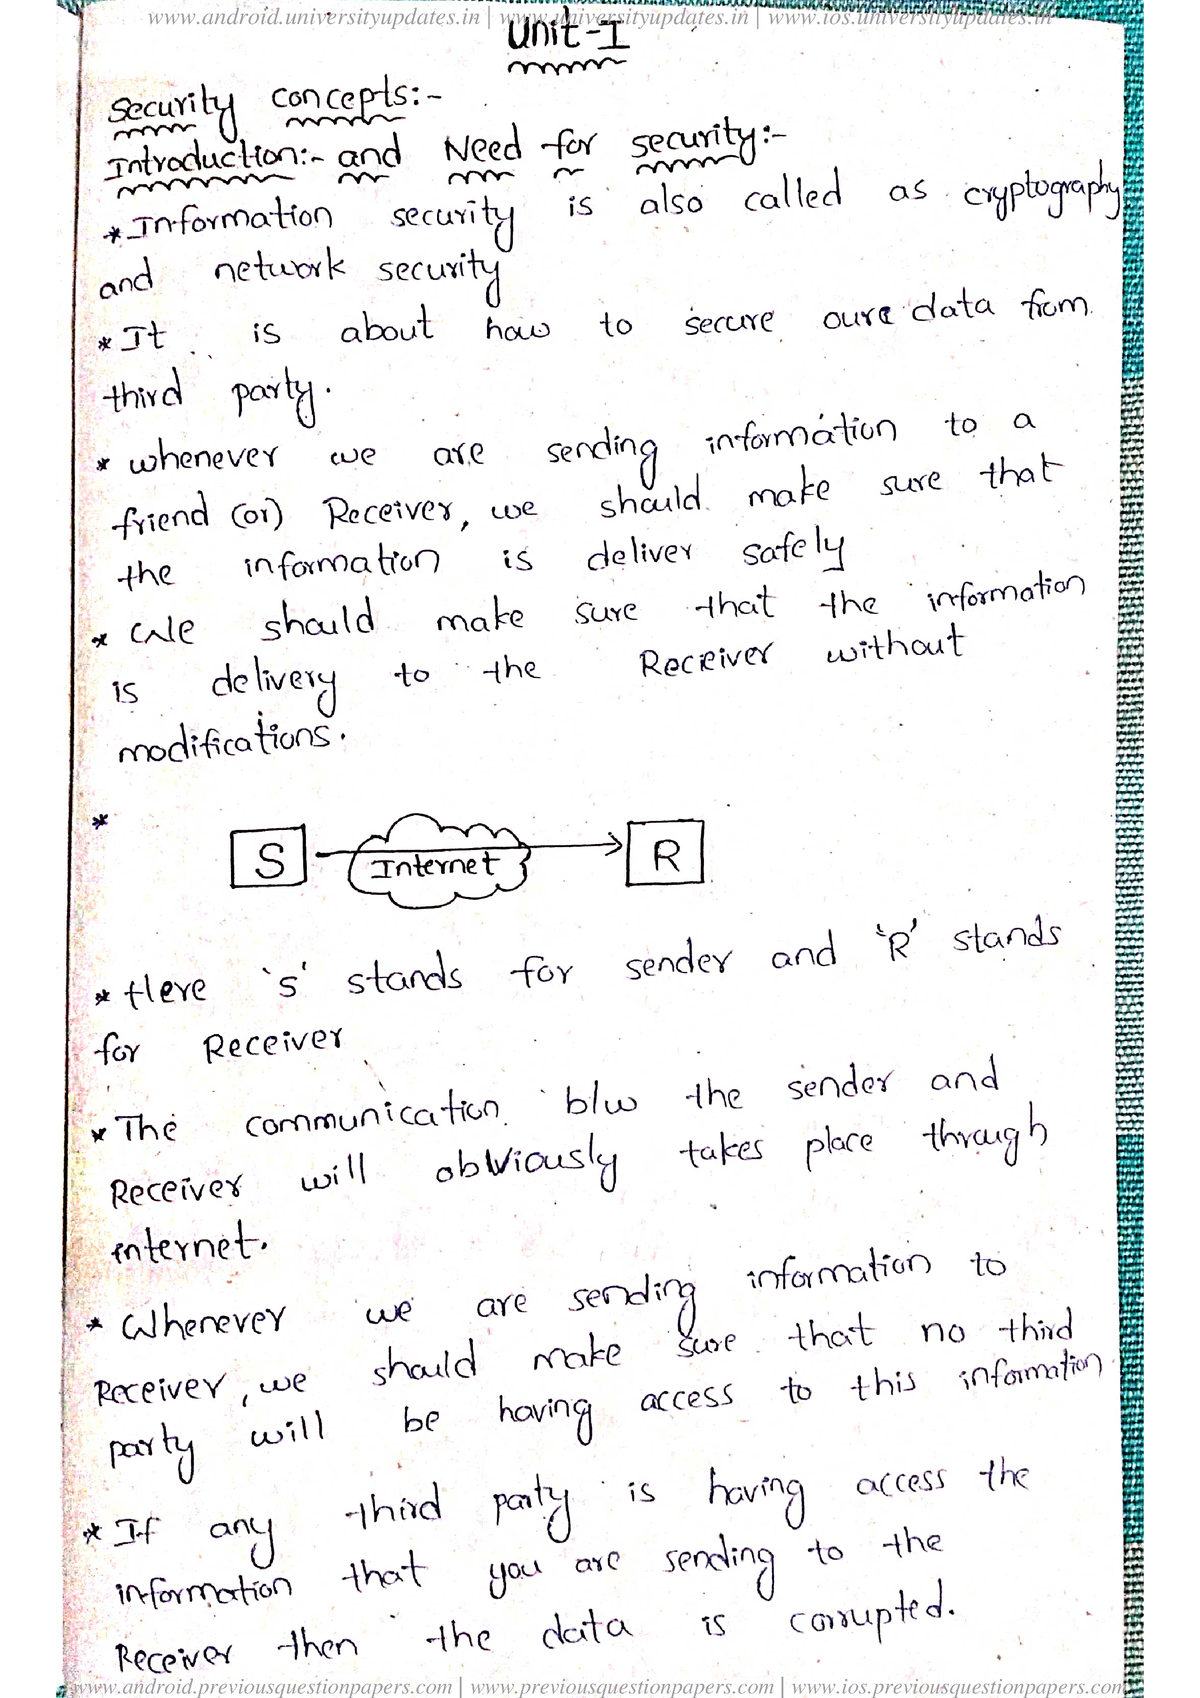 www.android.universityupdates.in | www.universityupdates.in | www.ios.universityupdates.in
Unit-I
Security concepts:-
Introduction:- and Need for security:-
* Information security is also called as cryptography
and network security
* It is about how to secure oure data from
third party.
* whenever we are sending information to a
friend (or) Receiver, we should make sure that
the information is deliver safely
* We should make sure that the information
is delivery to the Receiver without
modifications.
*
S Internet R
* Here 's' stands for sender and 'R' stands
for Receiver
* The communication b/w the sender and
Receiver will obviously takes place through
internet.
* Whenever we are sending information to
Receiver, we should make sure that no third
party will be having access to this information
* If any third party is having access the
information that you are sending to the
Receiver then the data is corrupted.
www.android.previousquestionpapers.com | www.previousquestionpapers.com | www.ios.previousquestionpapers.com